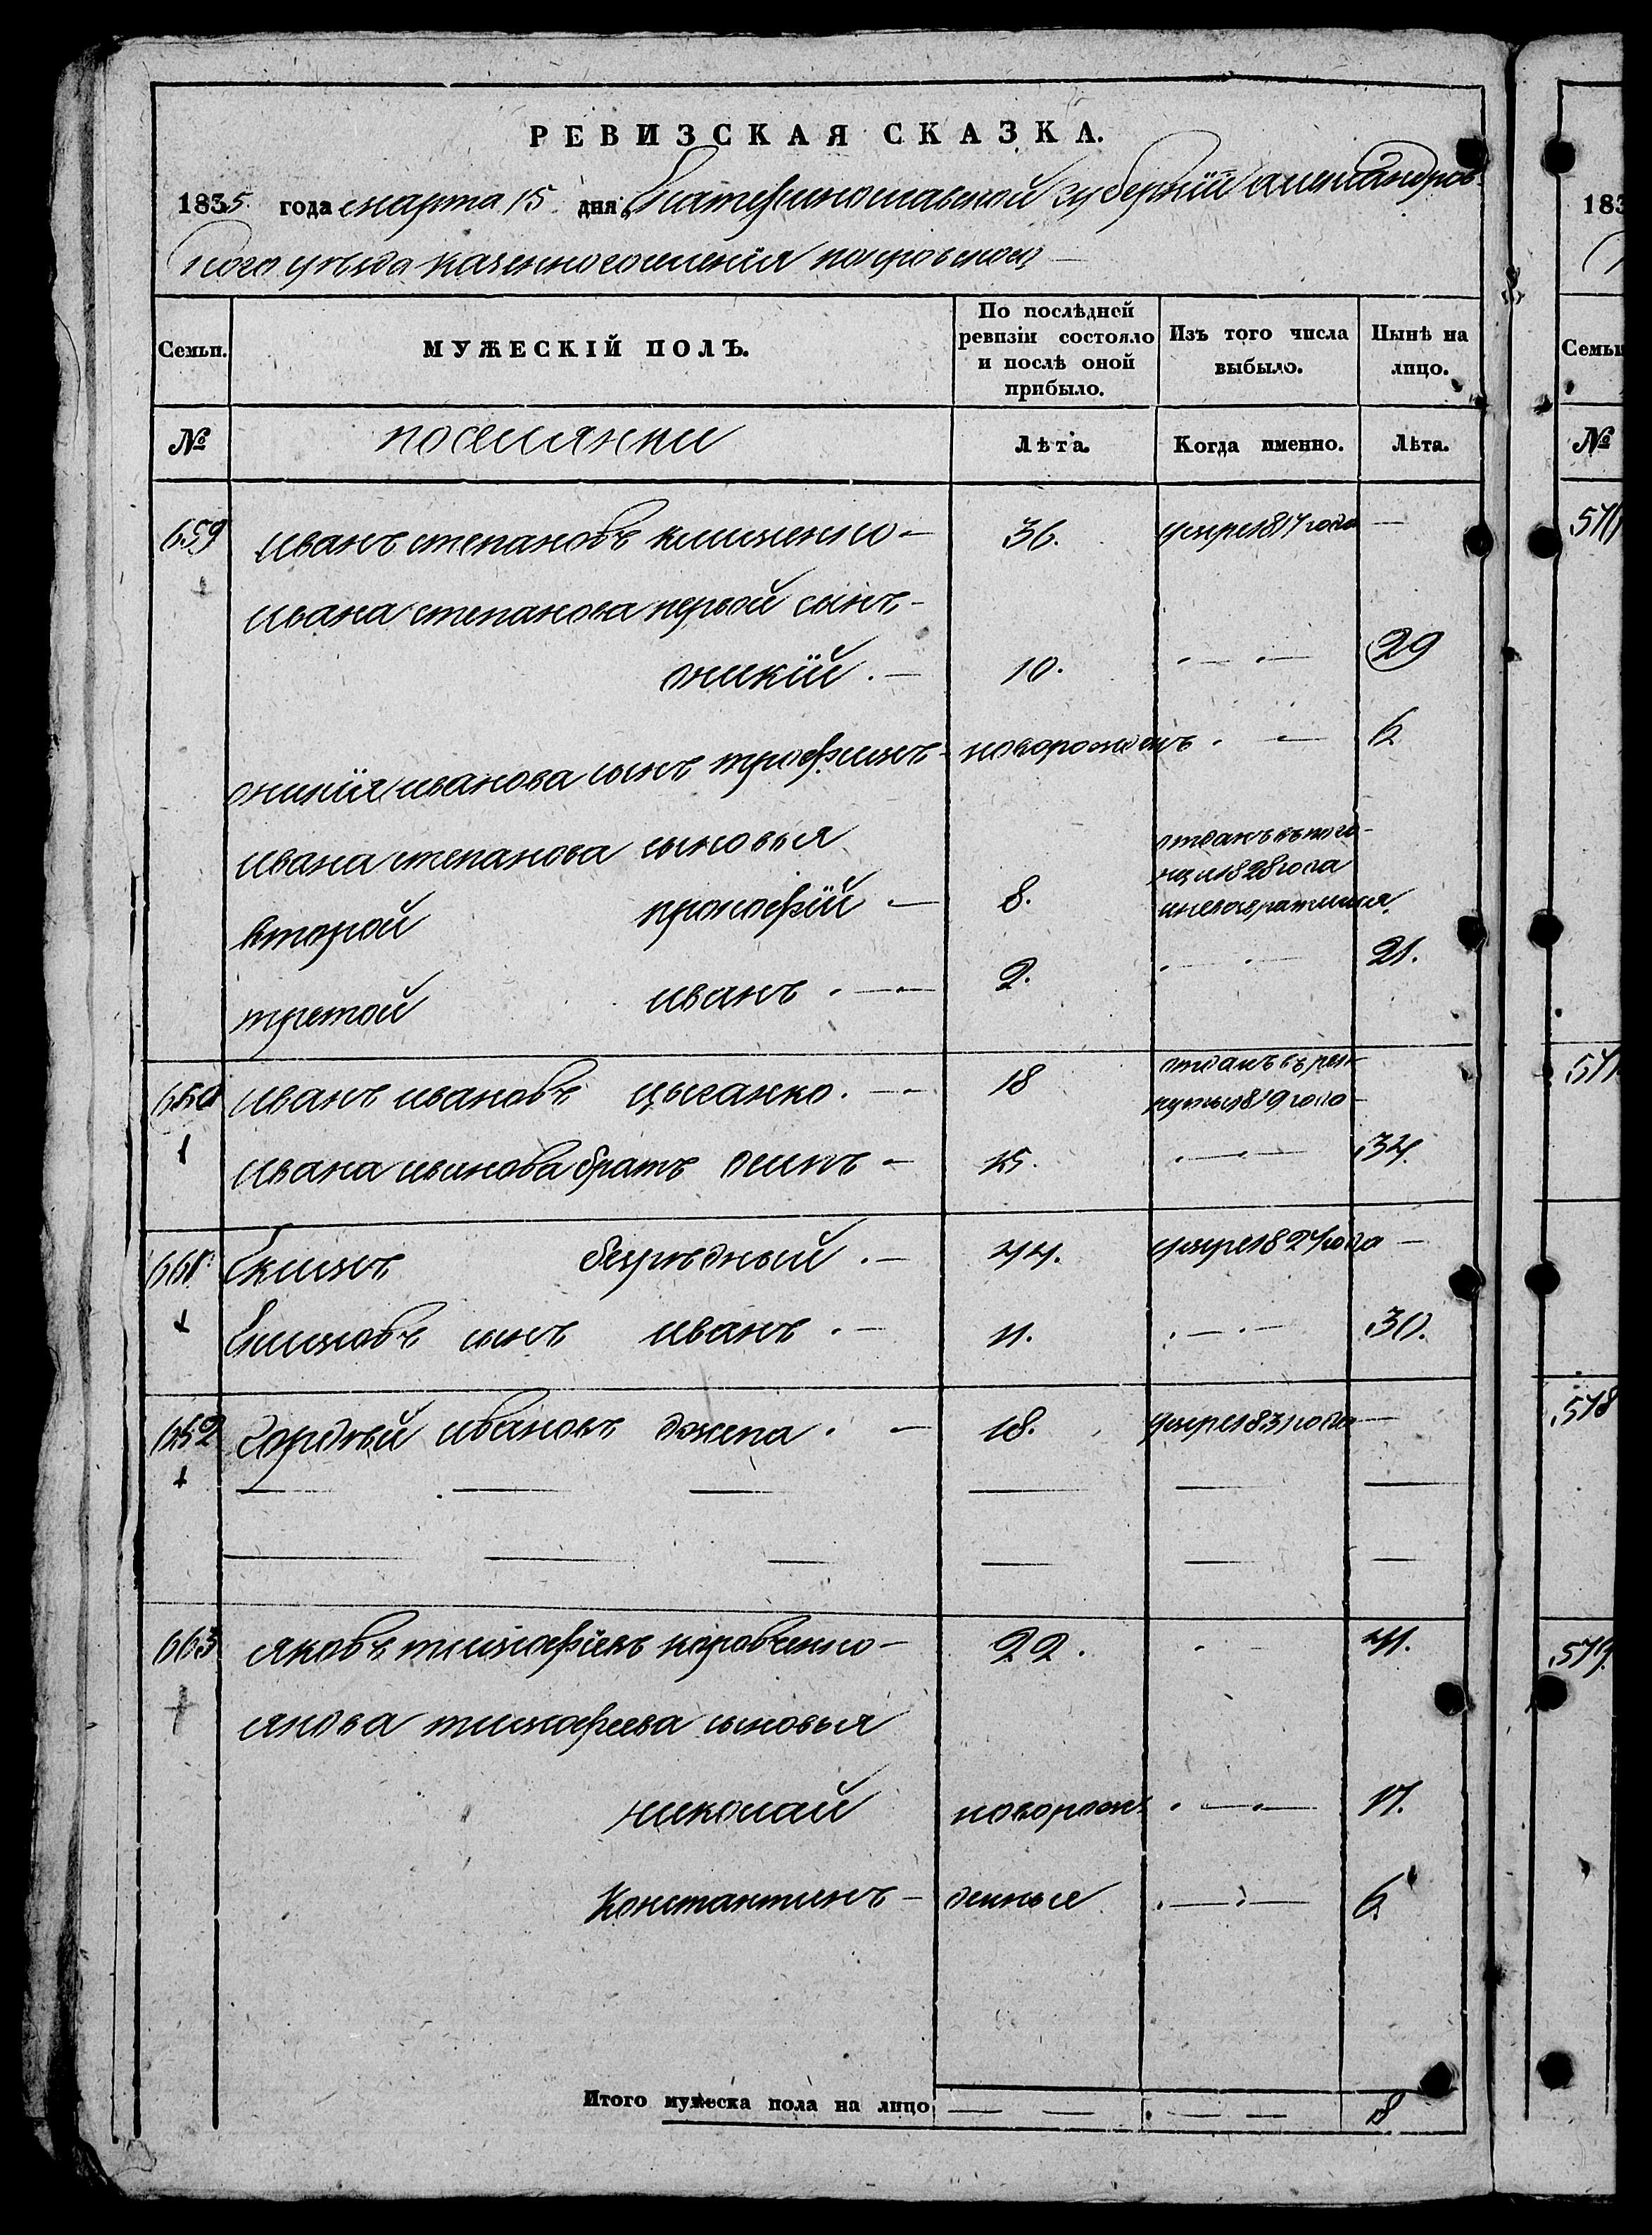 РЕВИЗСКАЯ СКАЗКА.
1835 года марта 15 дня Екатеринославской губернiи александров
ского уѣзда казенного селенiя покровского
Семьи. МУЖЕСКIЙ ПОЛЪ. По послѣдней ревизiи состояло и послѣ оной прибыло. Изъ того числа выбыло. Нынѣ на лицо.
№ поселянки Лѣта. Когда именно. Лѣта.
659 иванъ степановъ клименко 36. умре 1817 года —
ивана степанова первой сынъ
оникiй. 10. 29
оникiя иванова сынъ трофимъ новорожденъ 6
ивана степанова сыновья
второй прокофiй 8. отданъ въ 1828 года
третой иванъ 2. 21.
660 иванъ ивановъ цыганко. 18 отданъ въ рекруты 1819 года
ивана иванова братъ осипъ 15. 34.
661 Екимъ безродный. 44. умре 1827 года —
Екимовъ сынъ иванъ. 11. 30.
662 гордѣй ивановъ джепа. 18. умре 1831 года —
663 яковъ тимофѣевъ кравченко 22. 41.
якова тимофеева сыновья
николай новорож 17.
Константинъ денные 6
Итого мужеска пола на лицо 8
183
Семьи
№
577
578
579